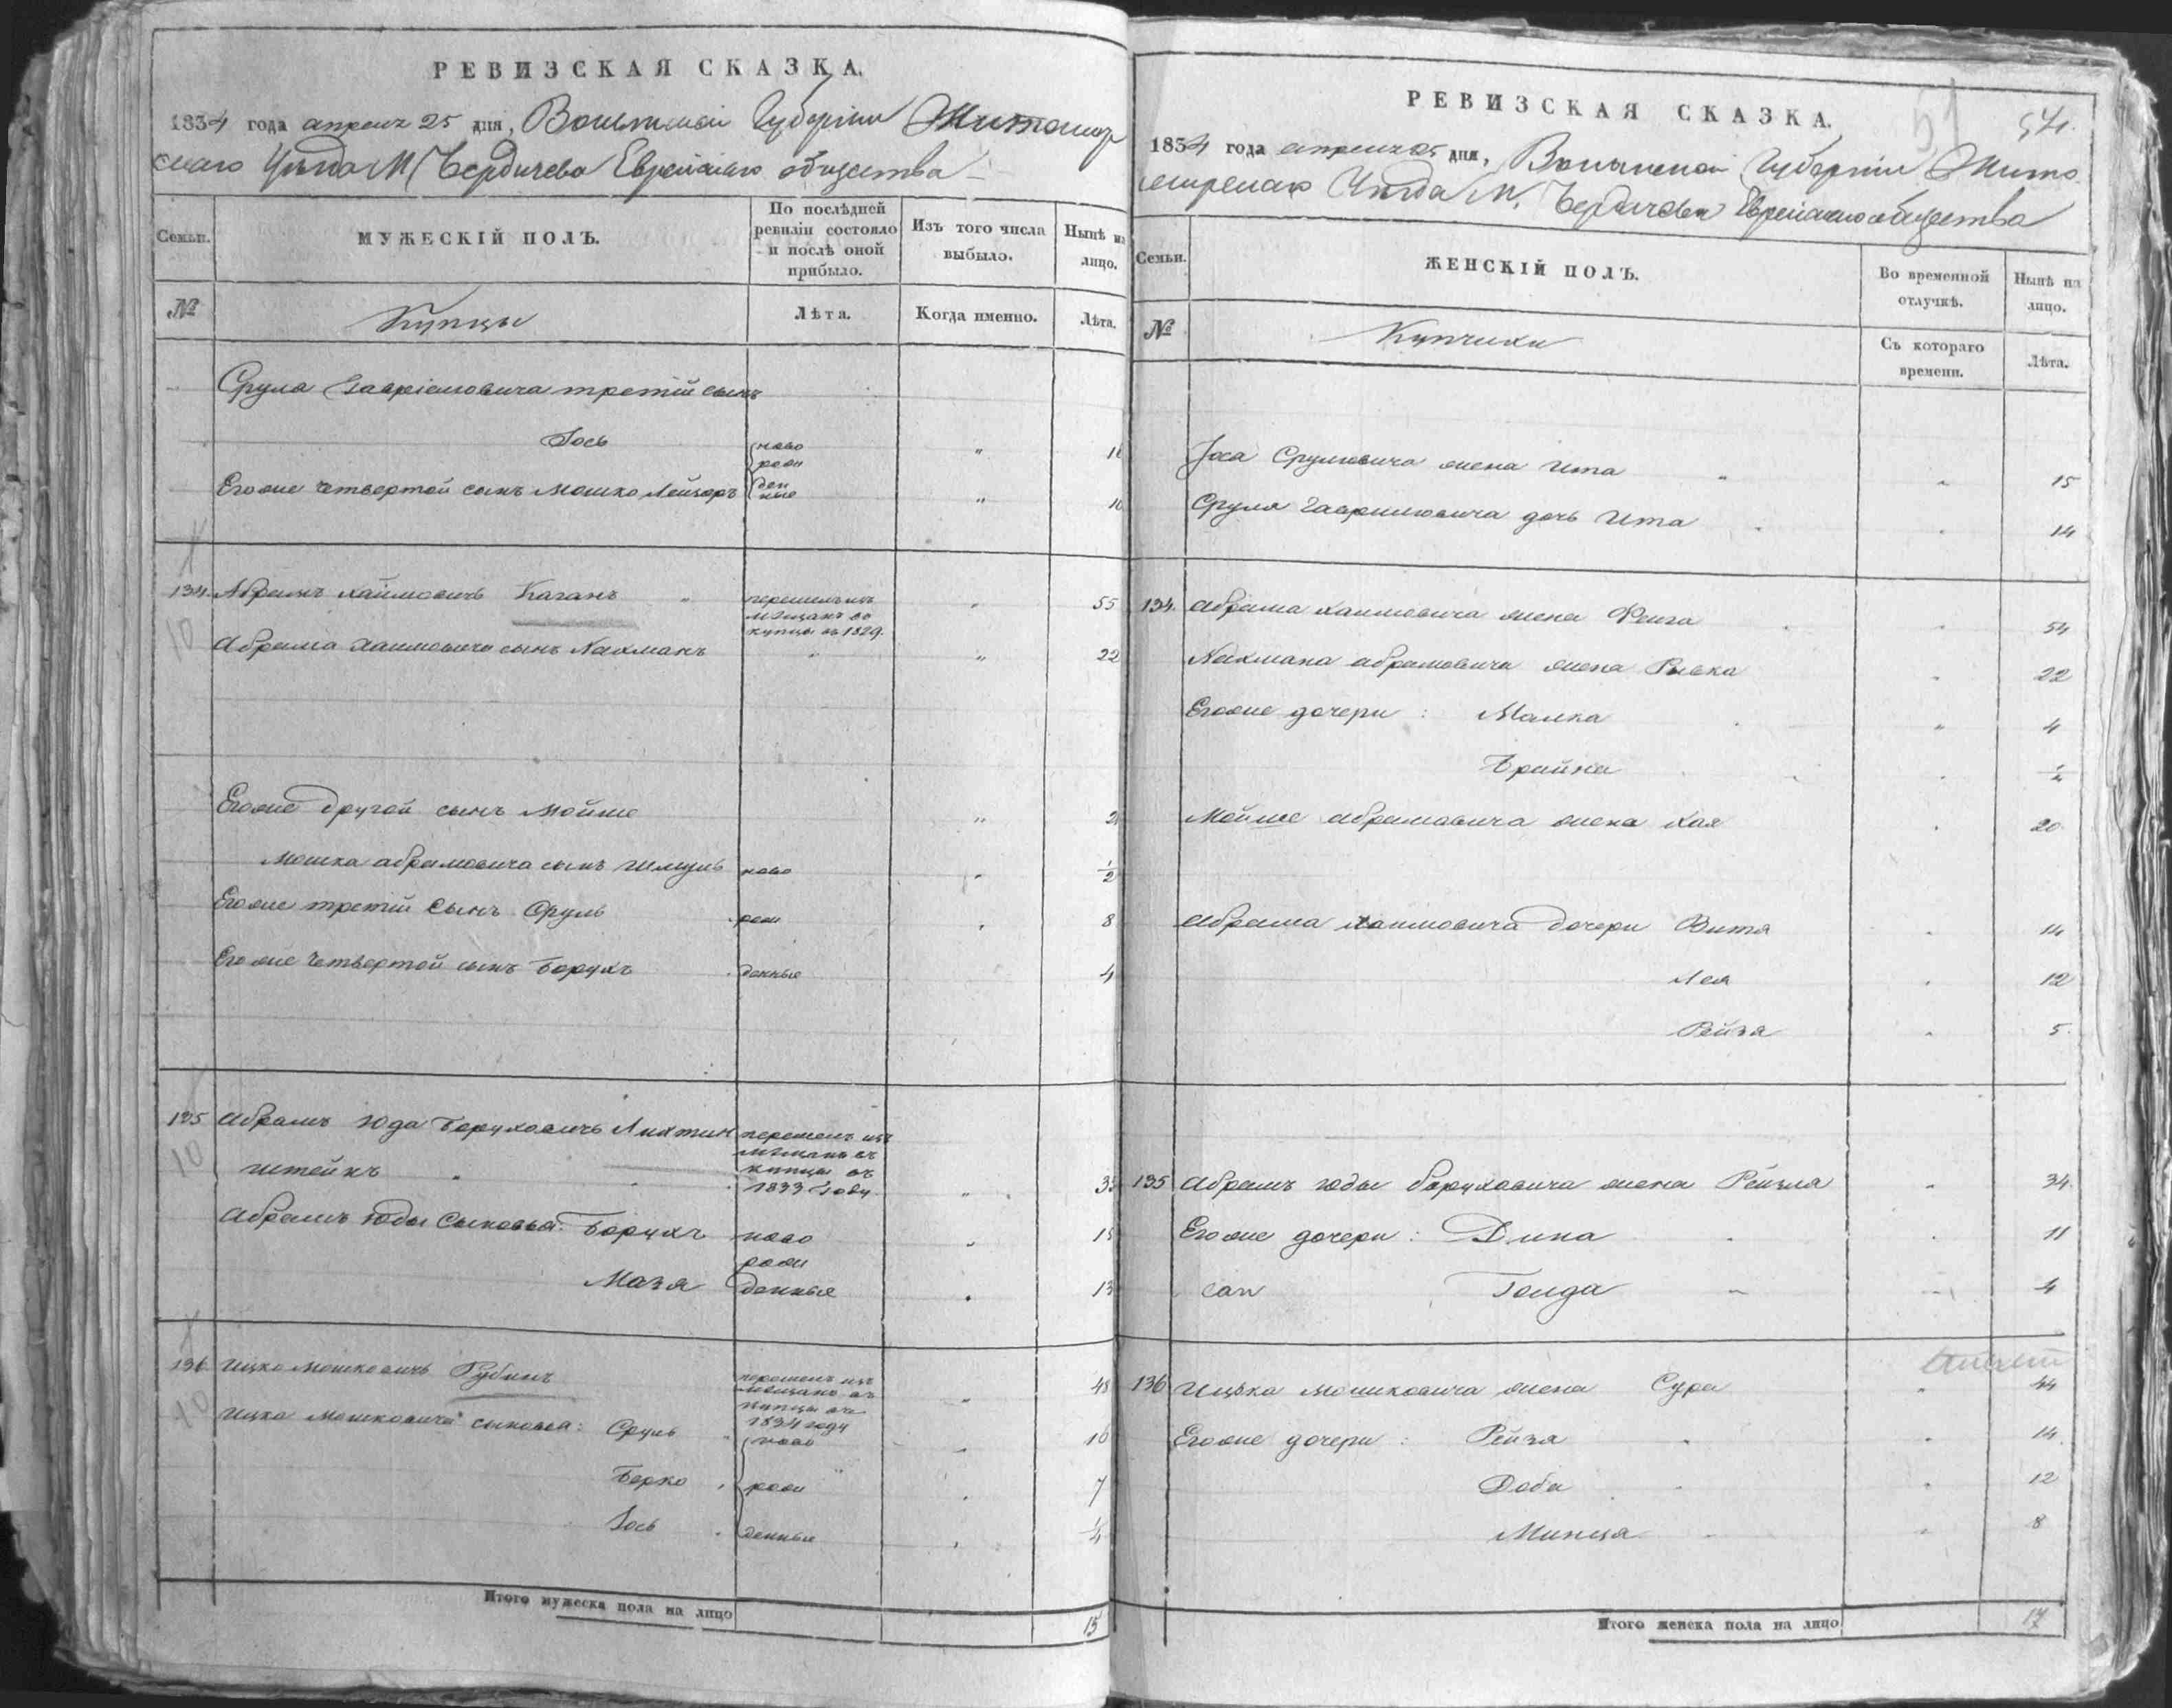 РЕВИЗСКАЯ СКАЗКА.
1834 года апреля 25 дня, Волынской Губернiи Житомир
скаго Уѣзда М. Бердичева Еврейскаго общества
Семьи.
МУЖЕСКIЙ ПОЛЪ.
По послѣдней ревизiи состояло и послѣ оной прибыло.
Изъ того числа выбыло.
Нынѣ на лицо.
№
Купцы
Лѣта.
Когда именно.
Лѣта.
Срула Гаврiиловича третiй сынъ
Iось ново " 1
рож
Егоже четвертой сынъ Мошко Лейзоръ ден " 10
ные
134. Абрамъ Хаимовичъ Каганъ " перешелъ изъ " 55
мѣщанъ въ
купцы въ 1829.
10 Абрама Хаимовича сынъ Нахманъ " " 22
Егоже другой сынъ Мойше " 2
Мошка Абрамовича сынъ Шмуль ново " 1/2
Егоже третiй сынъ Сруль рож " 8
Егоже четвертой сынъ Борухъ денные 4
135 Абрамъ Юда Боруховичъ Лихтин перешелъ изъ
штейнъ " мѣщанъ въ
10 купцы въ
1833 году " 3
Абрамъ Юды сыновья: Борухъ ново " 1
рож
Мазя денные " 13
136 Ицко Мошковичъ Рубинъ перешелъ изъ " 48
мѣщанъ въ
купцы въ
1834 году
10 Ицка Мошковича сыновья: Сруль " ново " 16
Берко рож " 7
Iось денные " 1/4
Итого мужеска пола на лицо 15
51 54.
РЕВИЗСКАЯ СКАЗКА.
1834 года апреля 25 дня, Волынской Губернiи Жито
мирскаго Уѣзда М. Бердичева Еврейскаго общества
Семьи.
ЖЕНСКIЙ ПОЛЪ.
Во временной отлучкѣ.
Нынѣ на лицо.
№
Купчихи
Съ котораго времени.
Лѣта.
Iоса Срулевича жена Ита " " 15
Срула Гавриловича дочь Ита " 14
134. Абрама Хаимовича жена Фейга " 54
Нахмана Абрамовича жена Ривка " 22
Егоже дочери: Малка " 4
Брайна " 1/2
Мойше Абрамовича жена Хая " 20
Абрама Хаимовича дочери Витя " 14
Лея " 12
Рейзя " 5.
135 Абрамъ Юды Боруховича жена Рейзля " 34
Егоже дочери: Дина " 11
Голда " 4
136 Ицька Мошковича жена Сура " 44
Егоже дочери: Рейзя " 14
Доба " 12
Минця " 8
Итого женска пола на лицо 17